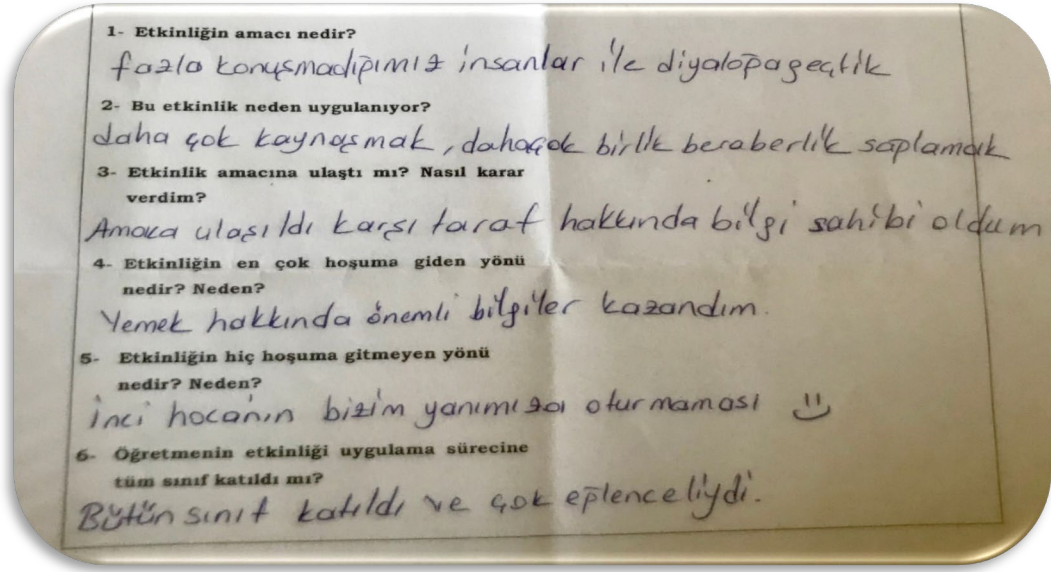 1- Etkinliğin amacı nedir?
fazla konuşmadığımız insanlar ile diyaloğa geçtik
2- Bu etkinlik neden uygulanıyor?
daha çok kaynaşmak, daha çok birlik beraberlik sağlamak
3- Etkinlik amacına ulaştı mı? Nasıl karar
verdim?
Amaca ulaşıldı karşı taraf hakkında bilgi sahibi oldum
4- Etkinliğin en çok hoşuma giden yönü
nedir? Neden?
Yemek hakkında önemli bilgiler kazandım.
5- Etkinliğin hiç hoşuma gitmeyen yönü
nedir? Neden?
İnci hocanın bizim yanımızda oturmaması
6- Öğretmenin etkinliği uygulama sürecine
tüm sınıf katıldı mı?
Bütün sınıf katıldı ve çok eğlenceliydi.